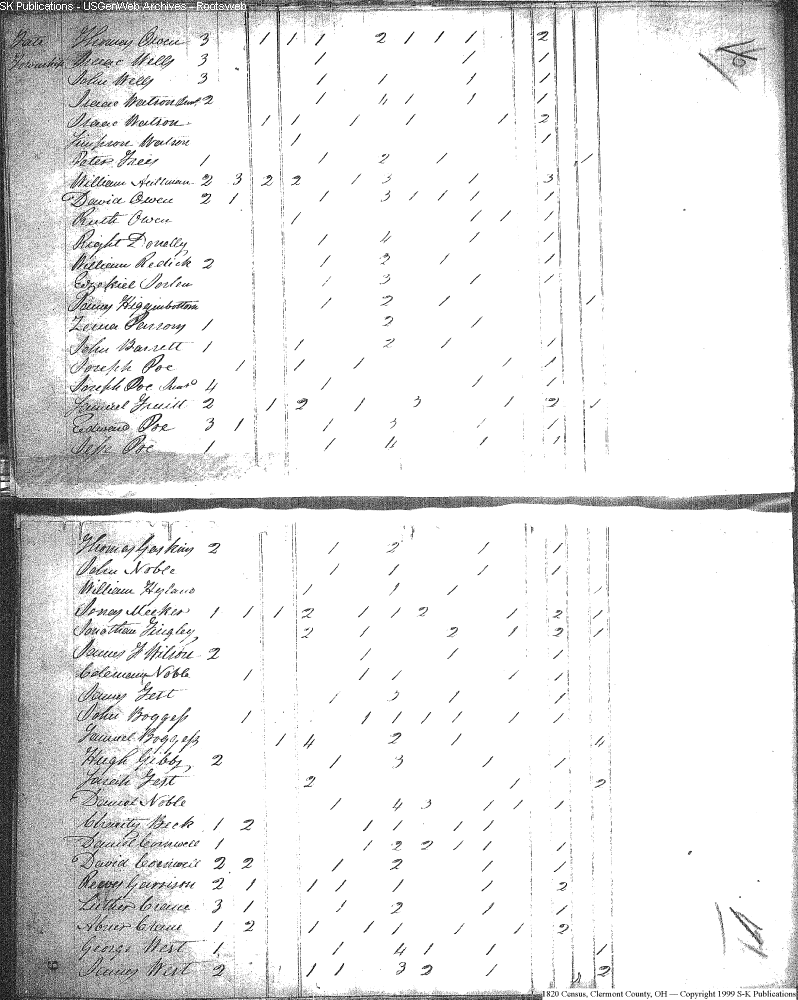 SK Publications - USGenWeb Archives - Rootsweb
Thomas Owen 3 1 1 1 2 1 1 1 2
Township Isaac Wells 3 1 1 1
John Wells 3 1 1 1 1
Isaac Watson 2 1 4 1 1 1
Isaac Watson 1 1 1 1 1 2
Simpson Watson 1 1
Peter Frees 1 1 2 1 1
William Hullman 2 3 2 2 1 3 1 3
David Owen 2 1 1 3 1 1 1 1
Ruth Owen 1 1 1 1
Right Donally 1 4 1 1
William Redick 2 1 3 1 1
Ezekiel 1 3 1 1
James Higginbottom 1 2 1 1
Parsons 1 2 1
John Barrett 1 1 2 1 1
Joseph Poe 1 1 1 1 1
Joseph Poe 4 1 1 1
Samuel Fruitt 2 1 2 1 3 1 2 1
Edward Poe 3 1 1 3 1 1
Poe 1 1 4 1 1
Thomas Gaskins 2 1 2 1 1
John Noble 1 1 1 1
William Hyland 1 1 1 1
Jonas Meeker 1 1 1 2 1 1 2 1 2 1
Jonathan Tingley 2 1 2 1 2 1
James Wilson 2 1 1 1
Coleman Noble 1 1 1 1 1
James Fest 1 3 1 1
John Boggess 1 1 1 1 1 1 1
Samuel Boggess 1 4 2 1 4
Hugh Gibby 2 1 3 1 1
Fest 2 1 2
Daniel Noble 1 4 3 1 1 1
Charity Beck 1 2 1 1 1 1
Daniel Cornwell 1 1 2 2 1 1 1
David Cornwell 2 2 1 2 1 1
Reeves Garrison 2 1 1 1 1 1 2
Luther Crane 3 1 1 2 1 1
Abner Crane 1 2 1 1 1 1 1 2
George West 1 1 4 1 1 1
James West 2 1 1 3 2 1 2
1820 Census, Clermont County, OH — Copyright 1999 S-K Publications